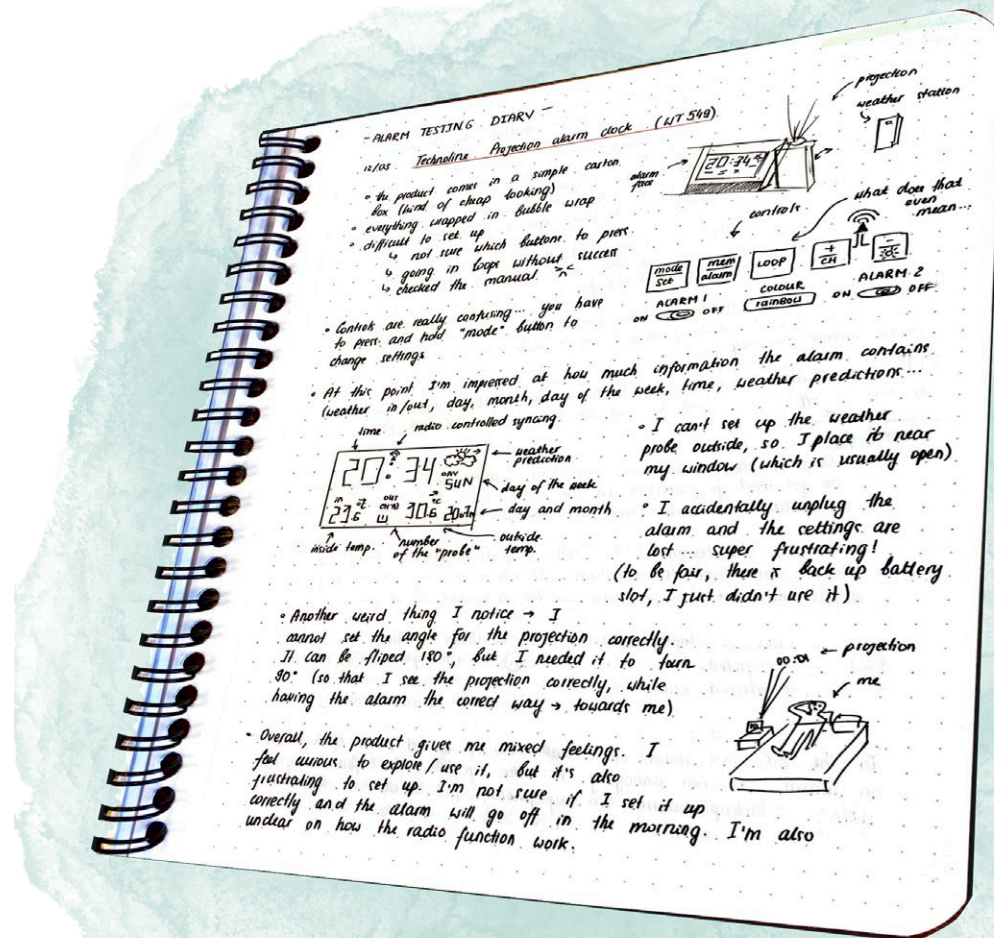 - ALARM TESTING DIARY -
12/05 Technoline Projection alarm clock (WT 549)
• the product comes in a simple carton
box (kind of cheap looking)
• everything wrapped in bubble wrap
• difficult to set up
↳ not sure which buttons to press
↳ going in loops without success
↳ checked the manual
projection
weather station
alarm
face
20:34
controls
what does that
even
mean...
mode
set
mem
alarm
LOOP
+
CH
-
ALARM 1
ON OFF
COLOUR
rainbow
ALARM 2
ON OFF
• Controls are really confusing... you have
to press and hold "mode" button to
change settings
• At this point I'm impressed at how much information the alarm contains
(weather in/out, day, month, day of the week, time, weather predictions...
time
radio controlled syncing
20:34
DAY
SUN
IN
23.6 °C
OUT
30.6 °C
weather
prediction
day of the week
day and month
inside temp.
number
of the "probe"
outside
temp.
• I can't set up the weather
probe outside, so I place it near
my window (which is usually open)
• I accidentally unplug the
alarm and the settings are
lost... super frustrating!
(to be fair, there is back up battery
slot, I just didn't use it)
• Another weird thing I notice → I
cannot set the angle for the projection correctly
It can be fliped 180°, but I needed it to turn
90° (so that I see the projection correctly, while
having the alarm the correct way → towards me)
00:01
projection
me
• Overall, the product gives me mixed feelings. I
feel curious to explore/use it, but it's also
frustrating to set up. I'm not sure if I set it up
correctly and the alarm will go off in the morning. I'm also
unclear on how the radio function work.